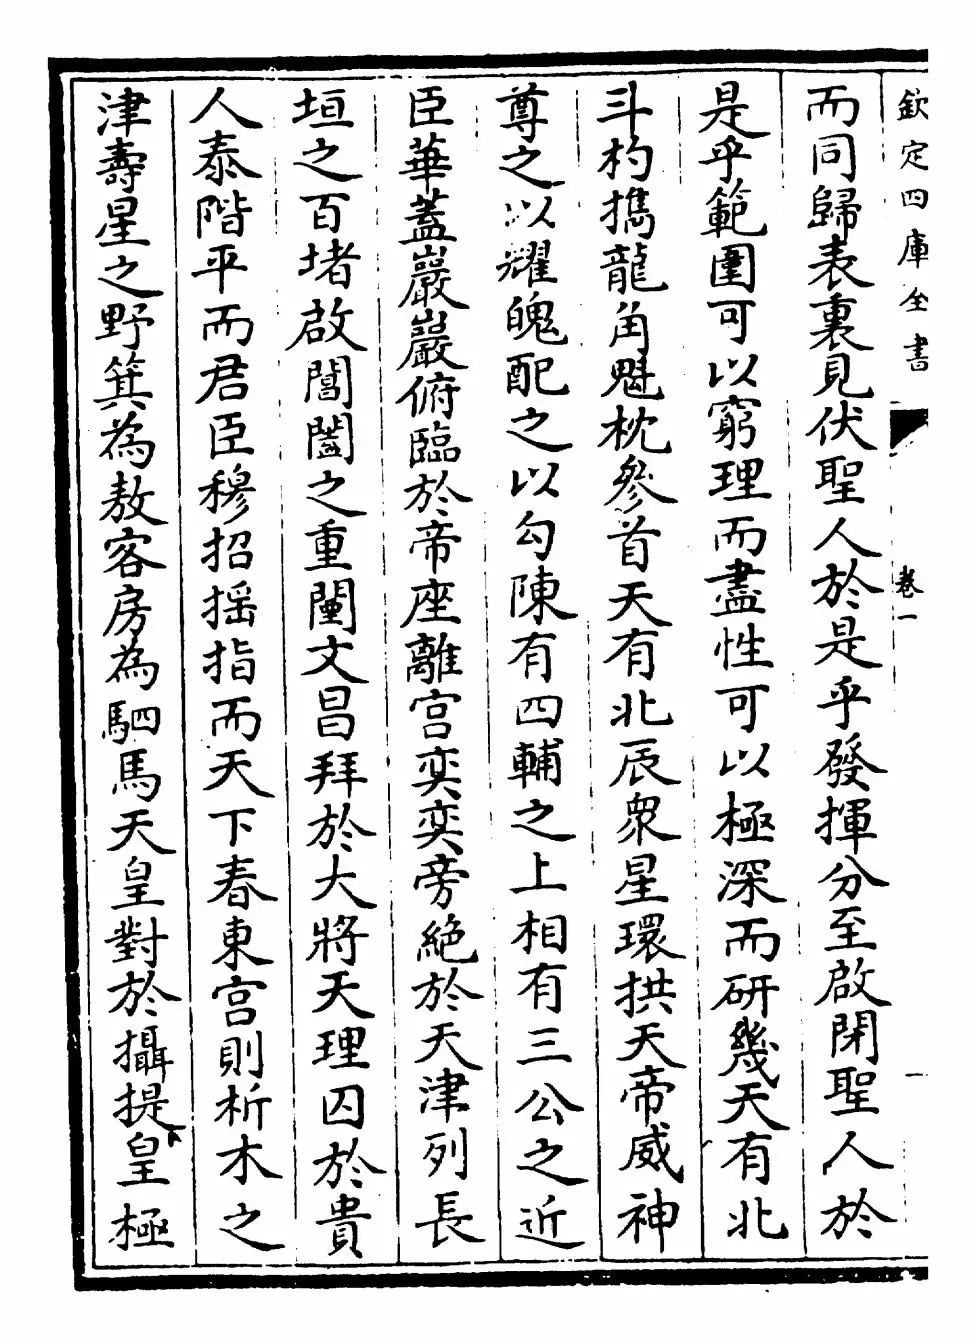 欽定四庫全書
卷一
而同歸表裏見伏聖人於是乎發揮分至啟閉聖人於
是乎範圍可以窮理而盡性可以極深而研幾天有北
斗杓攜龍角魁枕參首天有北辰衆星環拱天帝威神
尊之以耀魄配之以勾陳有四輔之上相有三公之近
臣華蓋巖巖俯臨於帝座離宮奕奕旁絶於天津列長
垣之百堵啟閶闔之重闉文昌拜於大將天理囚於貴
人泰階平而君臣穆招揺指而天下春東宮則析木之
津壽星之野箕為敖客房為駟馬天皇對於攝提皇極